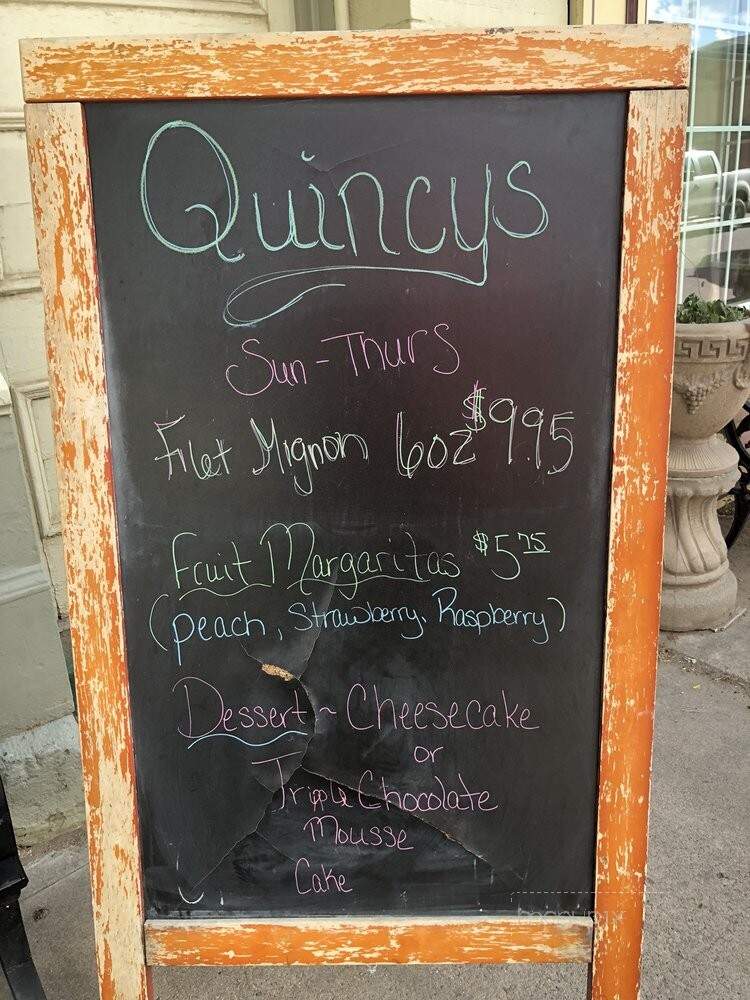 Quincys
Sun-Thurs
Filet Mignon 6oz $9.95
Fruit Margaritas $5.75
(peach, Strawberry, Raspberry)
Dessert ~ Cheesecake
or
Triple Chocolate
Mousse
Cake